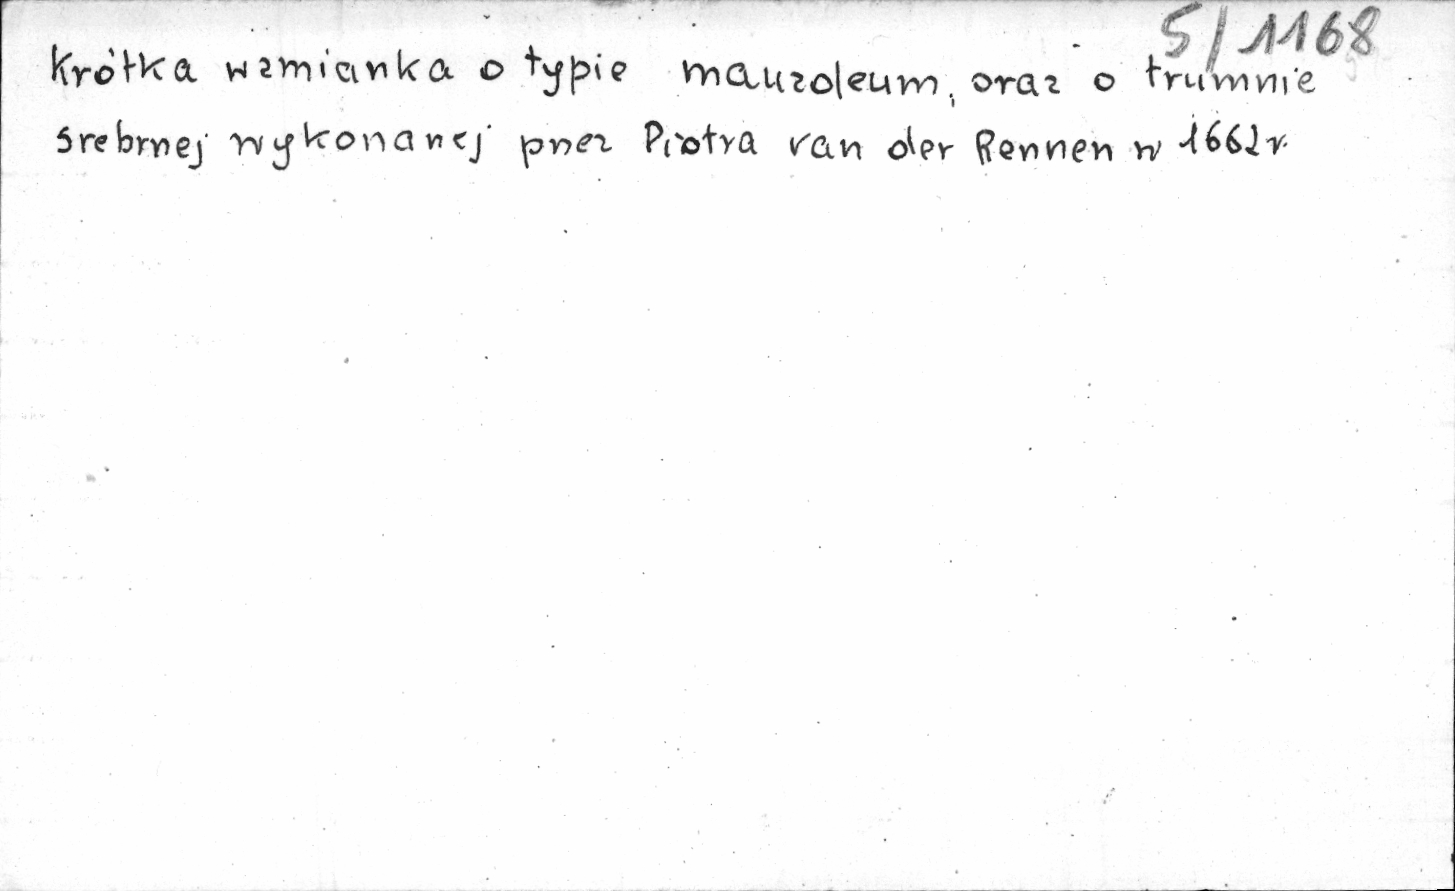 5/1168
Krótka wzmianka o typie mauzoleum, oraz o trumnie
srebrnej wykonanej przez Piotra van der Rennen w 1662 r.